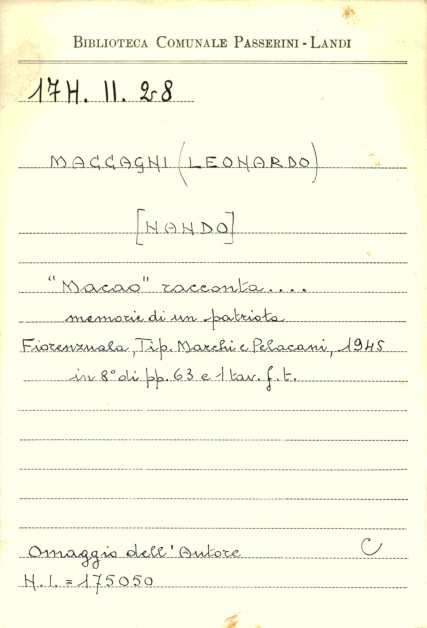 BIBLIOTECA COMUNALE PASSERINI-LANDI
17H. II. 28
MACCAGNI (LEONARDO)
[NANDO]
"Macao" racconta....
memorie di un patriota
Fiorenzuola, Tip. Marchi e Pelacani, 1945
in 8° di pp. 63 e 1 tav. f. t.
Omaggio dell'Autore C
N.I. = 175050